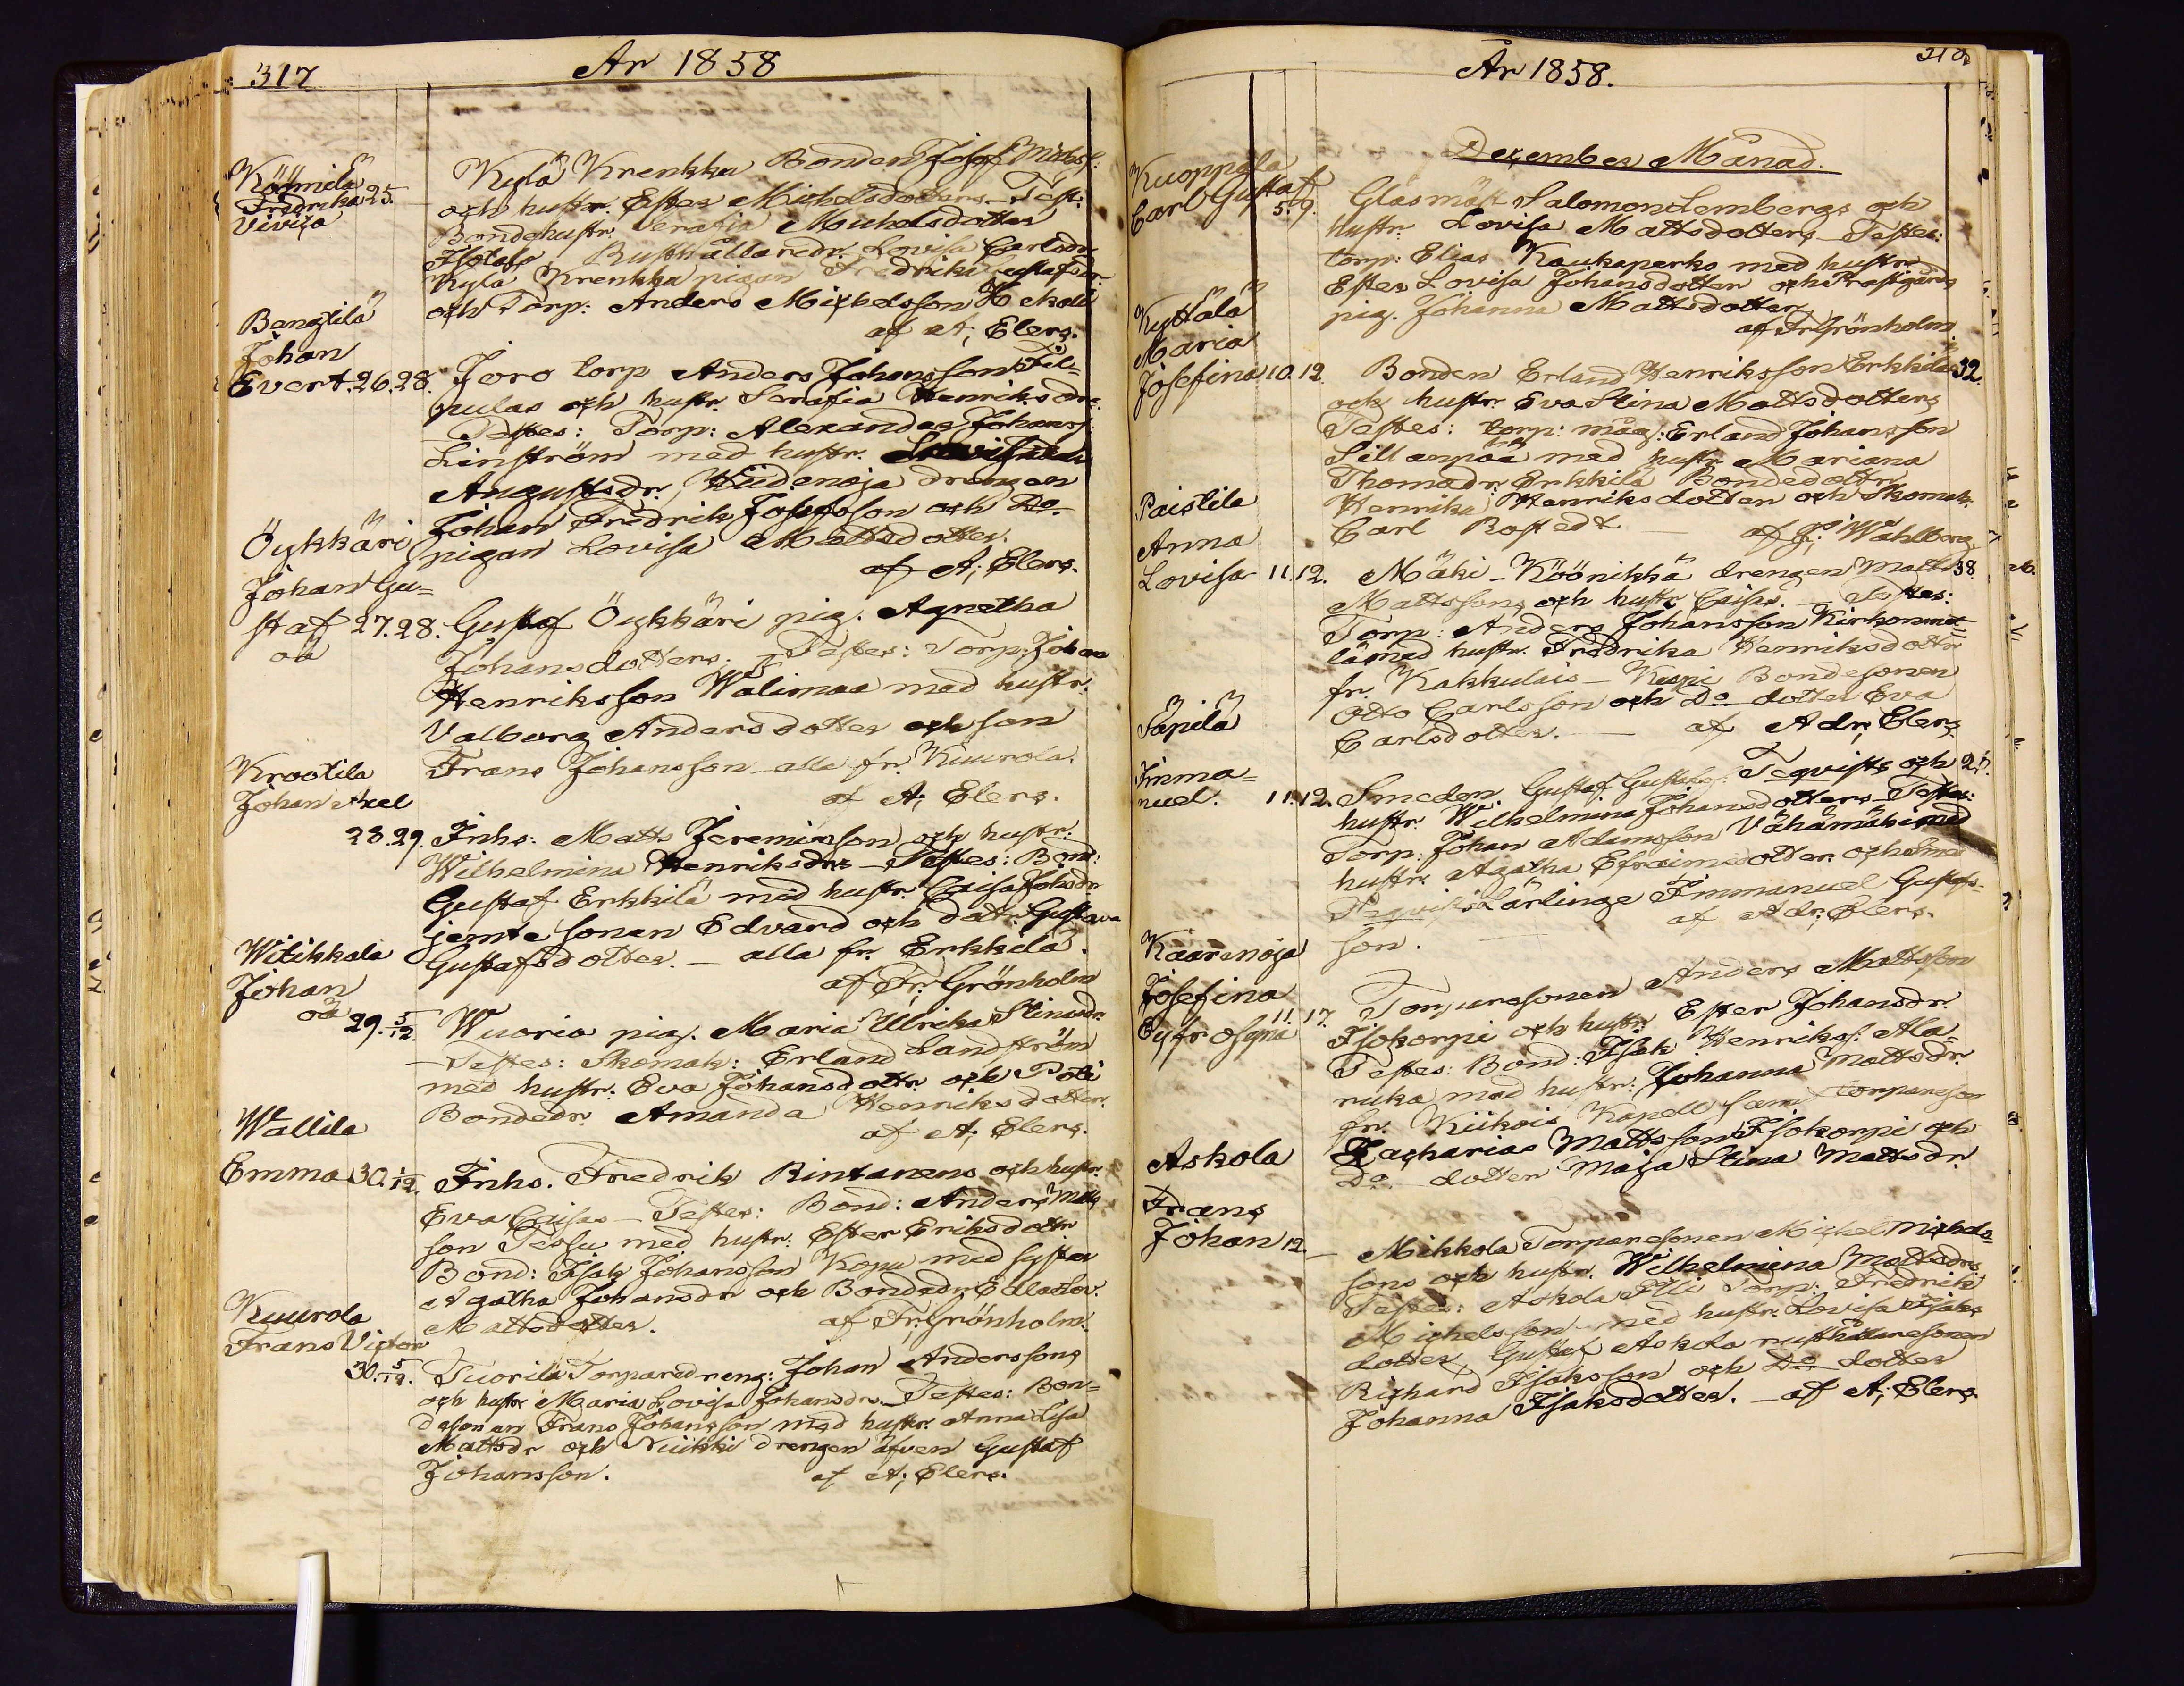 317
År 1858
Köömilä
Fredrika 25.
Viviga
Kylä Krenkka Bonden Josef Michels:
och hustr. Ester Michelsdotters. - Test:
Bondehustr. Serafia Michelsdotter
Isotalo, Rusthållaredr. Lovisa Carlsdr
Kylä Krenkka pigan Fredrika Gustafsdr.
och Torp: Anders Michelsson
af A; Elers.
Bengtilä
Johan
Evert. 26. 28.
Joro torp Anders Johanssons Fil-
pulas och hustr. Serafia Henriksdrs:
Testes: Torp: Alexander Johans:
Linström med hustr.
Augustsdr., Wiidenoja drengen
Johan Fredrik Josefsson och Do
pigan Lovisa Mattsdotter.
af A; Elers.
Öykkäri
Johan Gu=
staf 27. 28.
oä
Gustaf Öykkäri pig. Agnetha
Johansdotters. - Testes: Torp: Johan
Henriksson Wälimaa med hustr.
Valborg Andersdotter och son
Frans Johansson - alla fr. Kuurola.
af A; Elers.
Krootila
Johan Axel
28. 29.
Inhs: Matts Jeremiasson och hustr.
Wilhelmina Henriksdrs - Testes: Bond:
Gustaf Erkkilä med hustr. Caisa Johsdr
jemte sonen Edvard och dottr. Gustava
Gustafsdotter. - alla fr. Erkkilä.
af Fr; Grönholm
Witikkala
Johan
oä 29. 5/12.
Wuorio pig. Maria Ulrika Stinasdr.
- Testes: Skomak: Erland Landström
med hustr: Eva Johansdottr. och Poti
Bondedr. Amanda Henriksdotter.
af A; Elers.
Wallila
Emma 30. 1/12.
Inhs. Fredrik Rintanens och hustr.
Eva Caisas - Testes: Bond: Anders Matts
son Tessu med hustr: Ester Eriksdottr.
Bond: Isak Johansson Kopu med syster
Agatha Johansdr och Bondedr. Edla Lov.
Mattsdotter. af Fr; Grönholm.
Kuurola
Frans Victor
30. 5/12.
Tuorila Torparedreng: Johan Anderssons
och hustr Maria Lovisa Johansdr. - Testes: Bon=
desonen Frans Johansson med hustr. Anna Lisa
Mattsdr och Niikki drengen äfven Gustaf
Johansson. af A; Elers.
År 1858.
December Månad.
Kuoppala
Carl Gustaf
5. 9.
Glasmäst Salomon Lembergs och
hustr. Lovisa Mattsdotters - Testes:
torp: Elias Kaukaperko med hustr.
Ester Lovisa Johansdotter och Prestgårds
pig. Johanna Mattsdotter
af Fr. Grönholm
Kyttälä
Maria
Josefina 10. 12.
Bonden Erland Henriksson Erkkiläs 32.
och hustr. Eva Stina Mattsdotters
Testes: torp: måg: Erland Johansson
Sillanpää med hustr. Mariana
Thomasdr. Erkkilä Bondedottr.
Henrika Henriksdotter och Skomak.
Carl Bostedt - af J; Wahlberg
Paistila
Anna
Lovisa 11. 12.
Mäki-Köönikkä drengen Matts 38
Mattssons och hustr Caisas. - Testes:
Torp: Anders Johansson
lä med hustr. Fredrika Henriksdottr
fr. Kakkulais - Kuopi Bondesonen
Otto Carlsson och Do dotter Eva
Carlsdotter. - af Adr; Elers
Säpilä
Imma=
nuel. 11. 12.
Smeden Gustaf Gustafs: Teqvists och 27.
hustr. Wilhelmina Johansdotters - Testes:
Torp: Johan Adamsson Vähämäki med
hustr. Agatha Efraimsdotter och
lärlinge Immanuel Gustafs-
son. af Adr; Elers.
Kaaranoja
Josefina
11. 17.
Torparesonen Anders Mattsson
Isokorpi och hustr: Ester Johansdr.
Testes: Bond: Isak Henriks: Ala=
ruka med hustr: Johanna Mattsdr.
fr. Kiikois Kapell samt torpareson
Zacharias Mattsson Isokorpi och
Do dotter Maja Stina Mattsdr.
Askola
Frans
Johan 12. -
Mikkola Torparesonen Michel Michels=
sons och hustr. Wilhelmina Mattsdrs
Testes: Askola Torp: Fredrik
Michelsson med hustr. Lovisa Isaks
dotter, Gustaf Askola rusthållaresonen
Richard Isaksson och Do dotter
Johanna Isaksdotter. - af A; Elers.